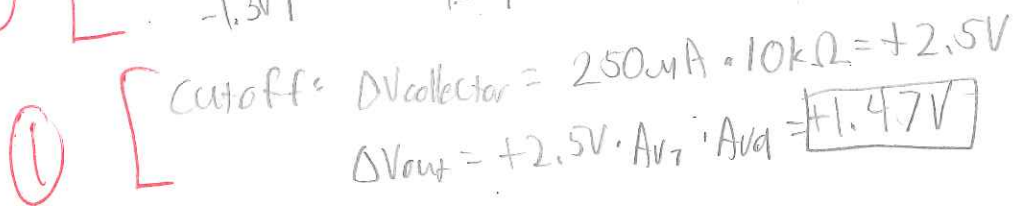 -1.5V
① Cutoff: ΔVcollector = 250uA · 10kΩ = +2.5V
ΔVout = +2.5V · Av₇ · Avd = +1.47V